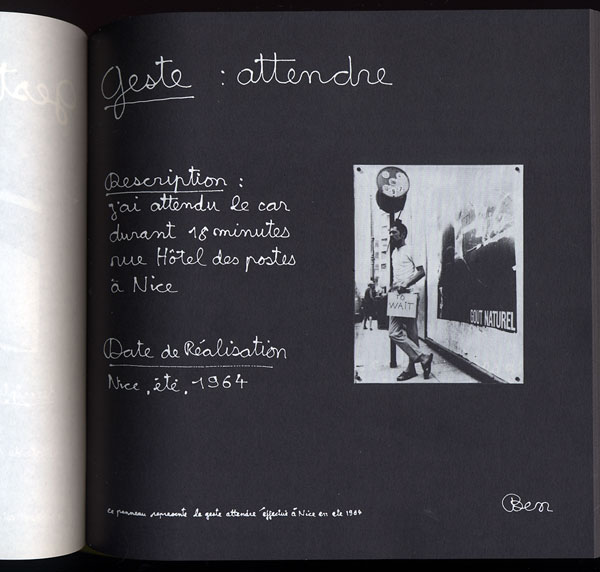 geste : attendre
Description :
j'ai attendu le car
durant 18 minutes
rue Hôtel des postes
à Nice
Date de Réalisation
Nice, été, 1964
TO
WAIT
GOUT NATUREL
ce panneau représente le geste attendre effectué à Nice en été 1964
Ben